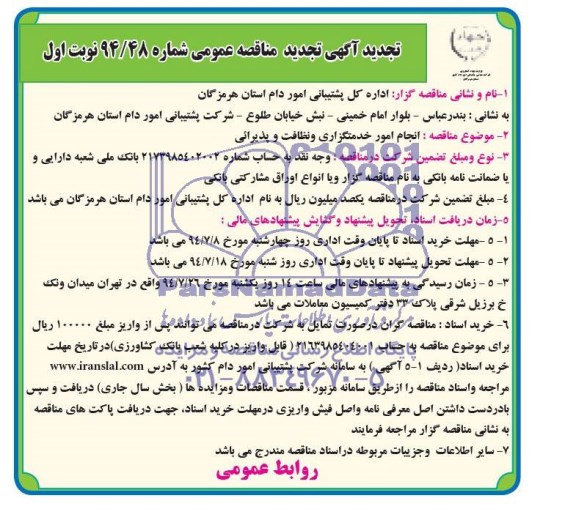 تجدید آگهی تجدید مناقصه عمومی شماره ۹۴/۴۸ نوبت اول
۱-نام و نشانی مناقصه گزار: اداره کل پشتیبانی امور دام استان هرمزگان
به نشانی : بندرعباس - بلوار امام خمینی - نبش خیابان طلوع - شرکت پشتیبانی امور دام استان هرمزگان
۲- موضوع مناقصه : انجام امور خدمتگزاری ونظافت و پذیرائی
۳- نوع ومبلغ تضمین شرکت درمناقصه : وجه نقد به حساب شماره ۲۱۷۳۹۸۵۴۰۲۰۰۲ بانک ملی شعبه دارایی و
یا ضمانت نامه بانکی به نام مناقصه گزار ویا انواع اوراق مشارکتی بانکی
۴- مبلغ تضمین شرکت درمناقصه یکصد میلیون ریال به نام اداره کل پشتیبانی امور دام استان هرمزگان می باشد
۵-زمان دریافت اسناد، تحویل پیشنهاد وگشایش پیشنهادهای مالی :
۱- ۵ -مهلت خرید اسناد تا پایان وقت اداری روز چهارشنبه مورخ ۹۴/۷/۸ می باشد
۲- ۵ -مهلت تحویل پیشنهاد تا پایان وقت اداری روز شنبه مورخ ۹۴/۷/۱۸ می باشد
۳- ۵ - زمان رسیدگی به پیشنهادهای مالی ساعت ۱۴ روز یکشنبه مورخ ۹۴/۷/۲۶ واقع در تهران میدان ونک
خ برزیل شرقی پلاک ۳۳ دفتر کمیسیون معاملات می باشد
۶- خرید اسناد : مناقصه گران درصورت تمایل به شرکت درمناقصه می توانند پس از واریز مبلغ ۱۰۰۰۰۰ ریال
برای موضوع مناقصه به حساب ۲۱۶۳۹۸۵۴۰۴۰۰۱ ( قابل واریز در کلیه شعب بانک کشاورزی)در تاریخ مهلت
خرید اسناد( ردیف ۱-۵ آگهی ) به سامانه شرکت پشتیبانی امور دام کشور به آدرس www.iranslal.com
مراجعه واسناد مناقصه را ازطریق سامانه مزبور ، قسمت مناقصات ومزایده ها ( بخش سال جاری) دریافت و سپس
بادردست داشتن اصل معرفی نامه واصل فیش واریزی درمهلت خرید اسناد، جهت دریافت پاکت های مناقصه
به نشانی مناقصه گزار مراجعه فرمایند
۷- سایر اطلاعات وجزییات مربوطه دراسناد مناقصه مندرج می باشد
روابط عمومی
ParsNamadData
پایگاه اطلاع رسانی مناقصه و مزایده
۰۲۱-۸۸۳۴۹۶۷۰-۵